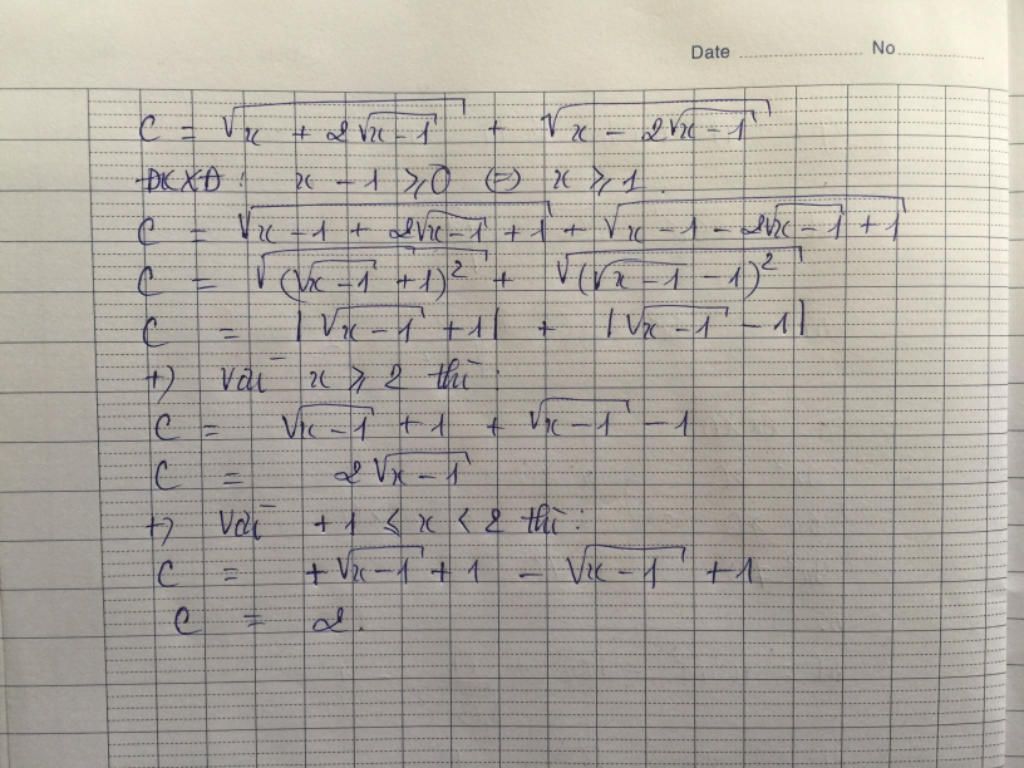 Date ........................ No ..................
C = √(x + 2√(x-1)) + √(x - 2√(x-1))
ĐKXĐ: x - 1 ⩾ 0 (=) x ⩾ 1.
C = √(x - 1 + 2√(x-1) + 1) + √(x - 1 - 2√(x-1) + 1)
C = √((√(x-1) + 1)²) + √((√(x-1) - 1)²)
C = |√(x-1) + 1| + |√(x-1) - 1|
+) Với x ⩾ 2 thì:
C = √(x-1) + 1 + √(x-1) - 1
C = 2√(x-1)
+) Với +1 ⩽ x < 2 thì:
C = +√(x-1) + 1 - √(x-1) + 1
C = 2.